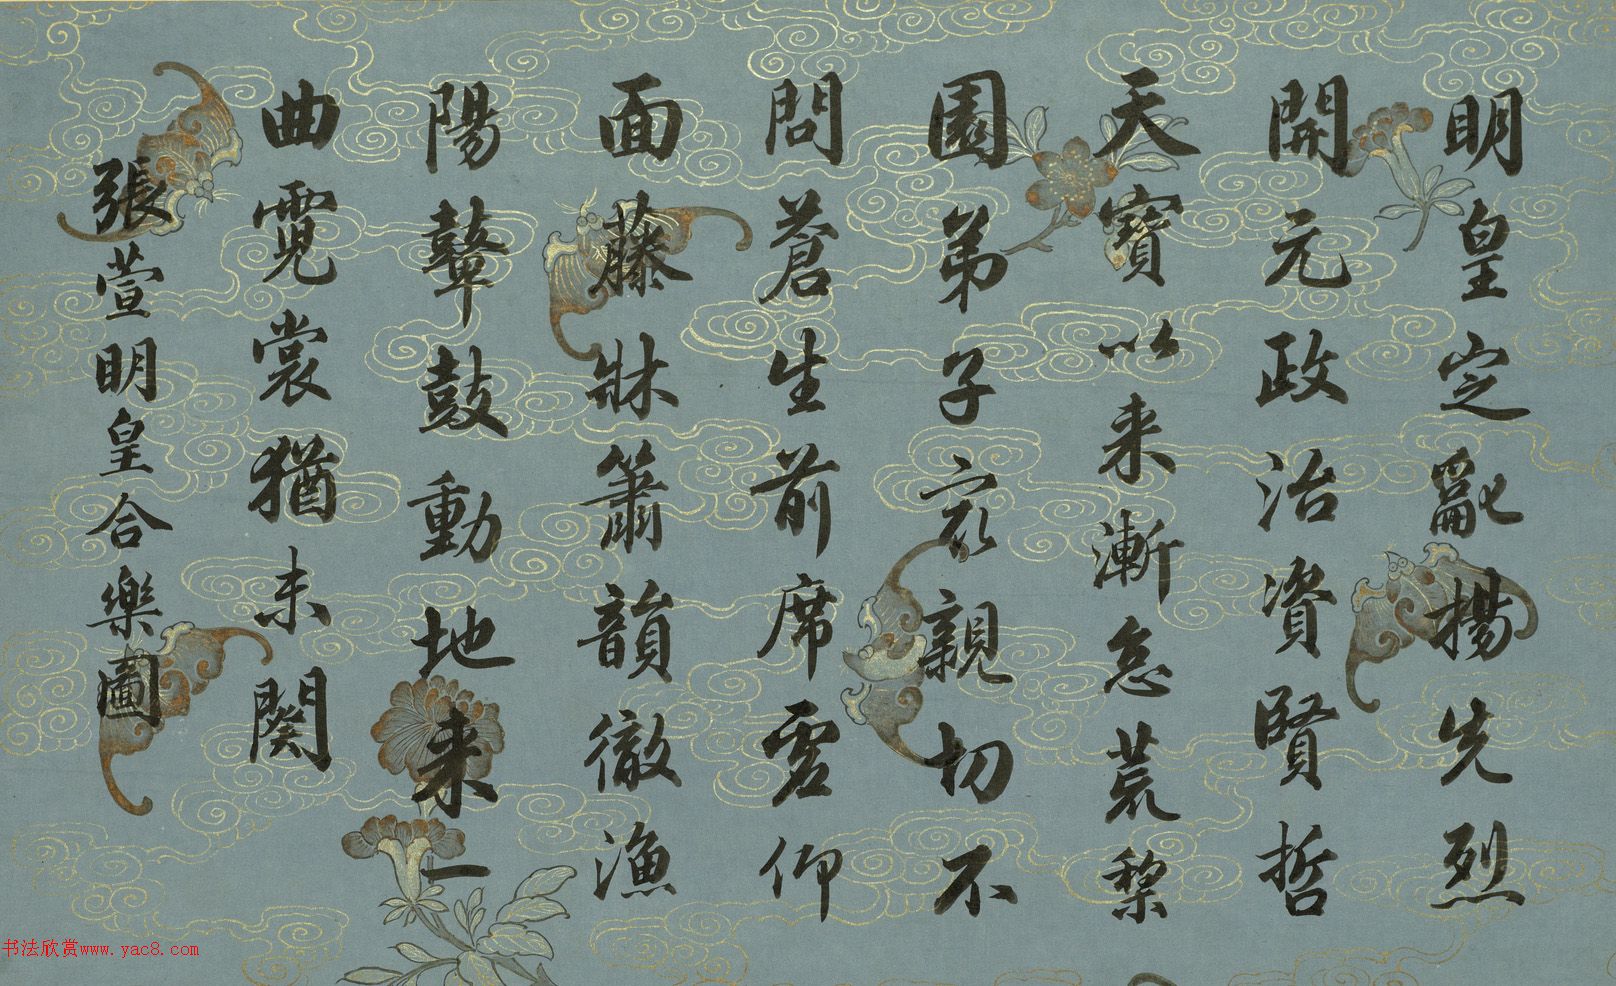 明皇定亂揚先烈
開元政治資賢哲
天寶以来漸怠荒棃
園弟子衮親切不
問蒼生前席虛仰
面藤牀簫韻徹漁
陽鼙鼓動地来一
曲霓裳猶未闋
張萱明皇合樂圖
书法欣赏www.yac8.com